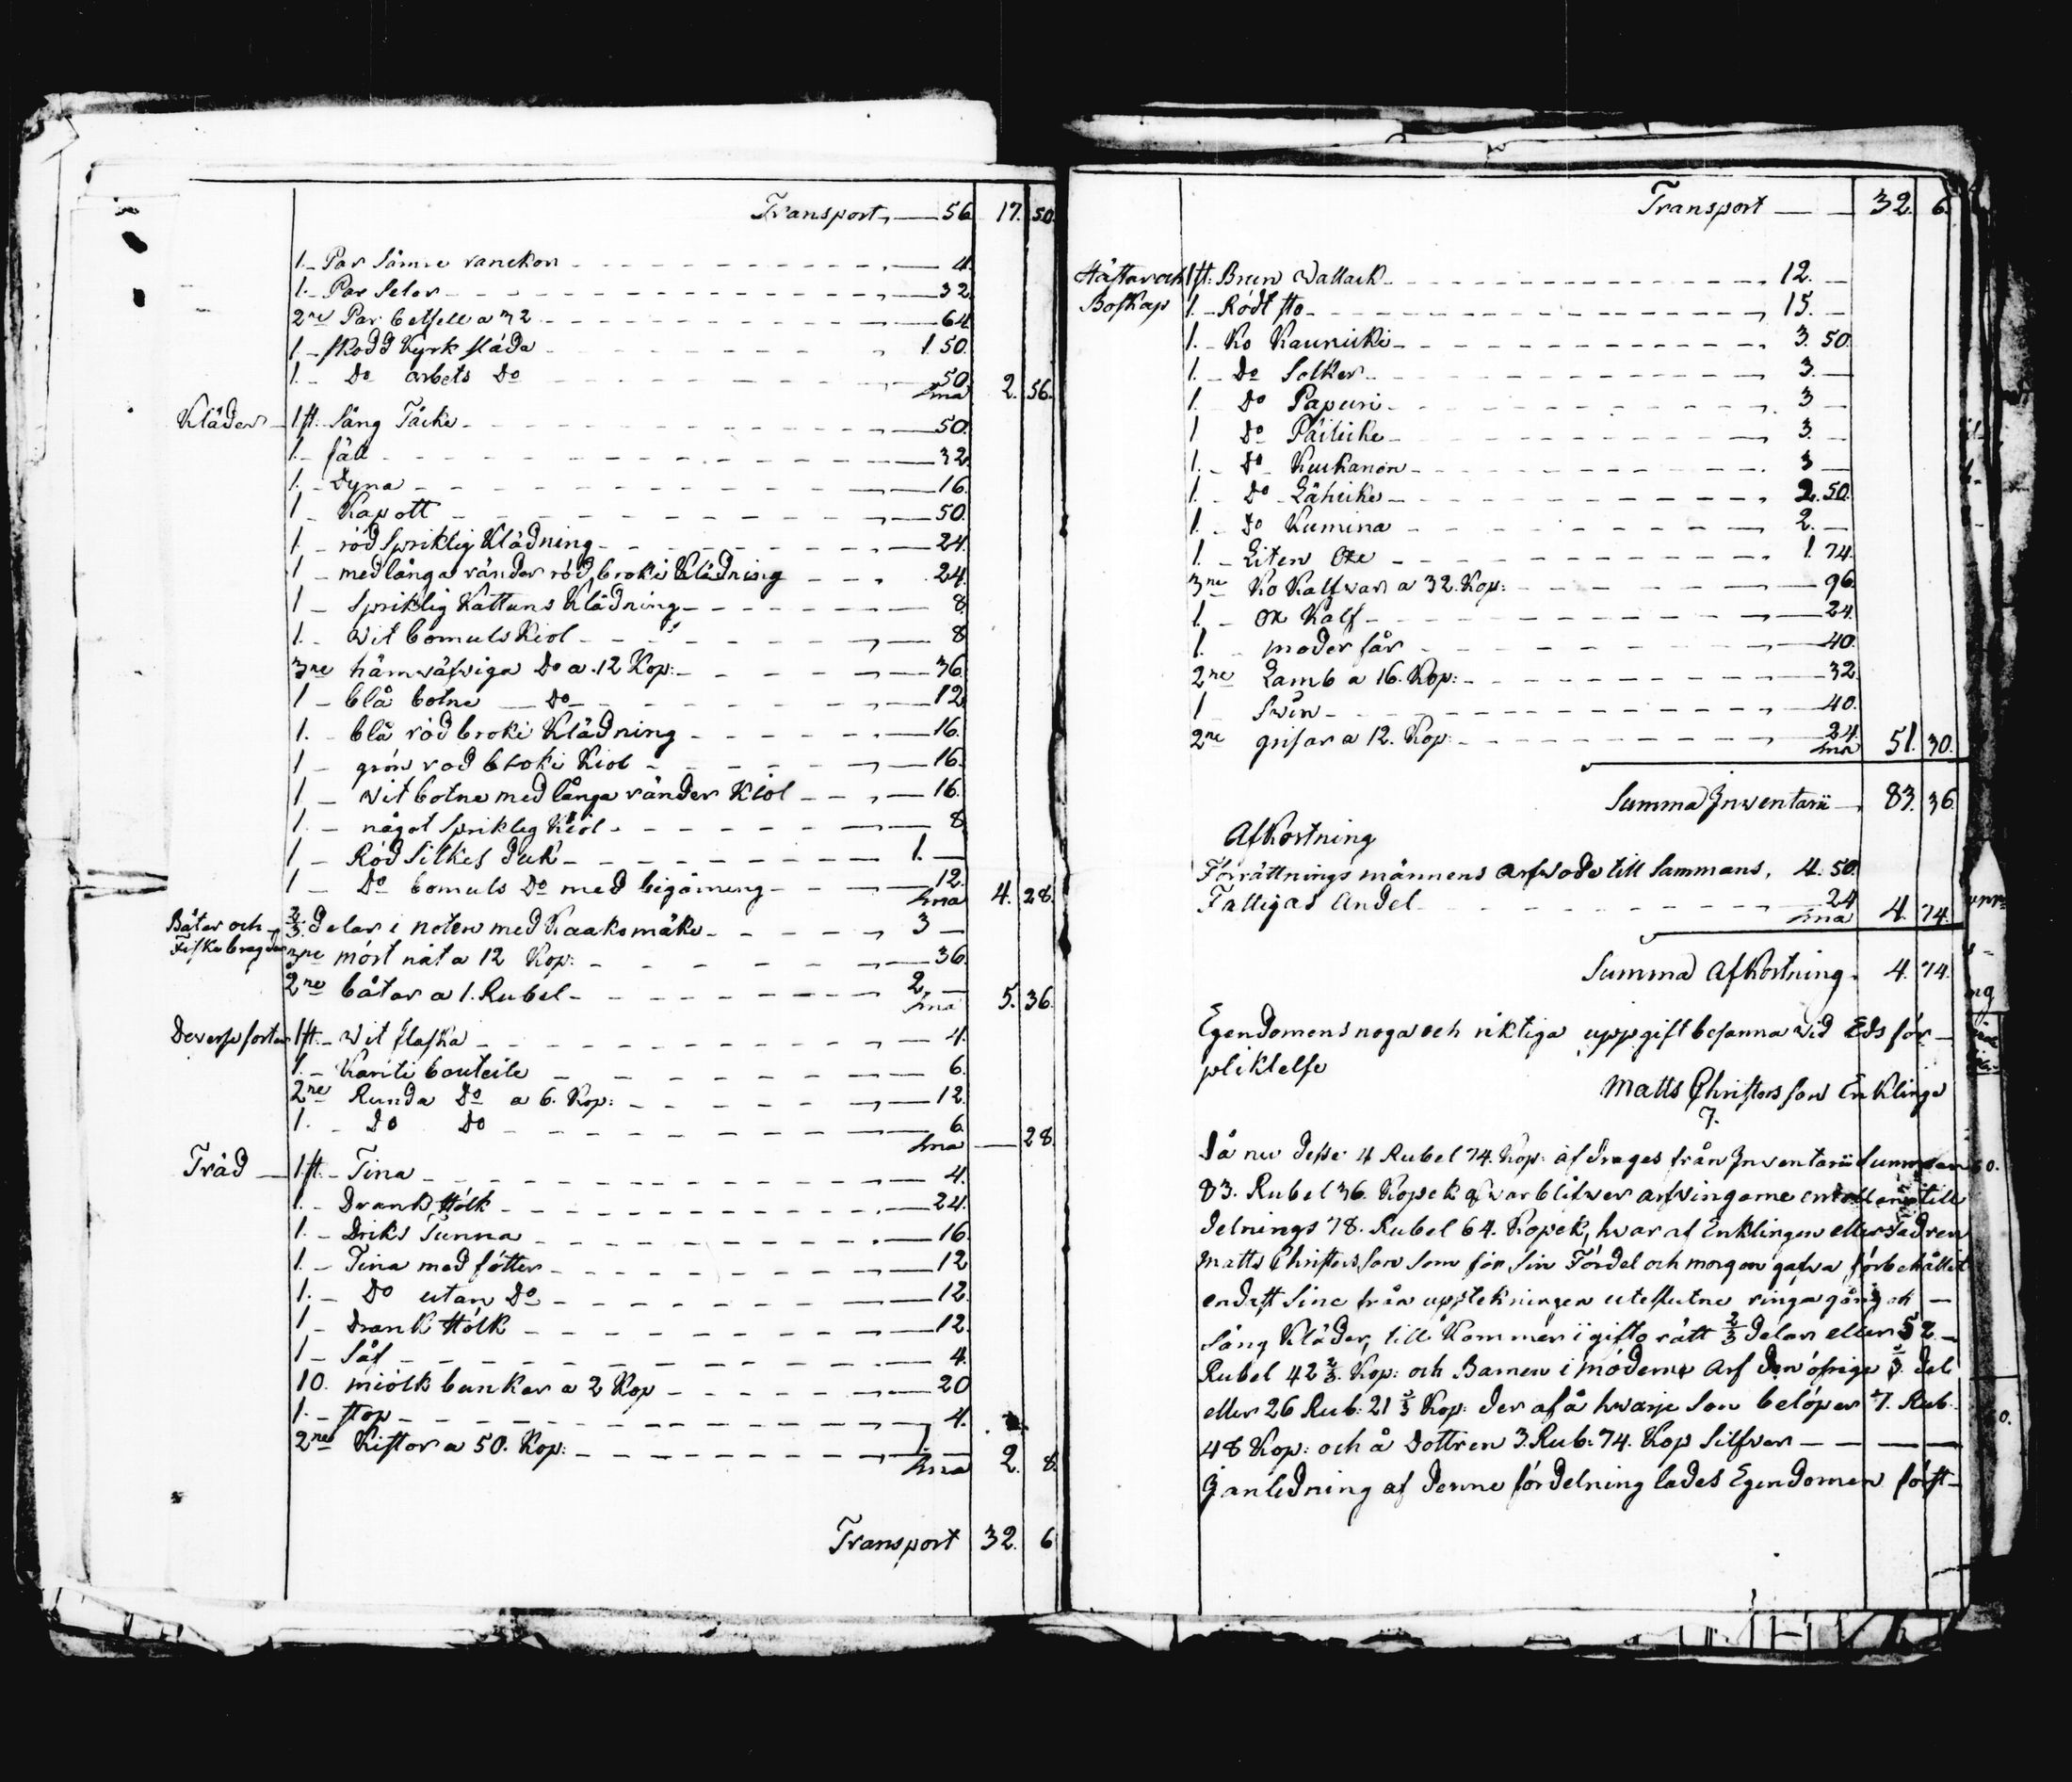 Transport, — 56. 17. 50.
1. – Par Sämre ranckor — 4.
1. – Par Selar — 32.
2ne Par betsell a 32 — 64.
1. – skodd Kyrk släda — 1. 50.
1. – Do arbets Do — 50.
Sma 2. 56.
Kläder – 1 st. Säng Täcke — 50.
1. – fäll — 32.
1. – Dyna — 16.
1 – Kapott — 50.
1 – röd Spriklig Klädning — 24.
1 – med långa ränder röd broki Klädning — 24.
1 – Spriklig Kattuns Klädning — 8
1. – Wit bomuls Kiol — 8
3ne hämwäfwiga Do a 12 Kop: — 36.
1 – blå botne — Do — 12
1. – blå röd broki Klädning — 16.
1 – grön röd broki Kiol — 16.
1 – Wit botne med långa ränder Kiol — 16.
1. – något Spriklig Kiol — 8
1 – Röd Silkes duk — 1. —
1 – Do bomuls Do med begäming — 12.
Sma 4. 28.
Båtar och – 2/3 delar i noten med Kaaksmäki — 3 —
Fiske bragder 3ne mört nät a 12 Kop: — 36.
2ne båtar a 1. Rubel — 2. —
Sma 5. 36.
Deverse sorter 1 st. – Wit flaska — 4.
1. – Kanti bouteile — 6.
2ne Runda Do a 6. Kop: — 12.
1. – Do Do — 6.
Sma — 28.
Träd — 1 st. – Tina — 4.
1. – Drank Hólk — 24.
1. – Driks Tunna — 16
1. – Tina med fötter — 12
1. – Do utan Do — 12.
1 – Drank Hólk — 12.
1 – Såf — 4.
10. miölk bunkar a 2 Kop — 20
1. – stop — 4.
2ne Kistor a 50. Kop: — 1. —
Sma 2. 8.
Transport 32. 6
Transport — — 32. 6.
Hästar och 1 st: Brun Wallack — 12. —
Boskap 1. – Rödt sto — 15. —
1. – Ko Kauniiki — 3. 50.
1. – Do Solker — 3. —
1. Do Papuri — 3 —
1 Do Päiliike — 3. —
1. – Do Kuikanon — 3 —
1. – Do – Lähiike — 2. 50.
1. – Do Kumina — 2. —
1. – Liten Oxe — 1. 74.
3ne Ko Kalfwar a 32. Kop: — 96.
1 – Ox Kalf — 24.
1. – moder får — 40.
2ne Lamb a 16. Kop: — 32
1 – Swin — 40.
2ne grisar a 12. Kop: — 24.
Sma 51. 30.
Summa Inventarii — 83. 36.
Afkortning
Förrättnings männens arfwode till sammans, 4. 50.
Fattigas Andel — 24
Sma 4. 74.
Summa Afkortning. 4. 74.
Egendomens noga och riktiga uppgift besanna wid Eds för –
pliktelse
Matts Christersson Enklinge
7.
Då nu desse 4 Rubel 74. Kop: afdrages från Inventarii Summan
83. Rubel 36. Kopek qwarblifwer arfwingarne emellan till
delnings 78. Rubel 64. Kopek, hwar af Enklingen eller Fadren
Matts Christersson som för sin Fördel och morgon gafwa förbehållit
endast sine från upptekningen uteslutne ringa gång och —
säng Kläder, till Kommer i gifto rätt 2/3 delar eller 52 —
Rubel 42 2/3. Kop: och Barnen i möderne Arf den öfrige 1/3. del
eller 26 Rub: 21 1/3 Kop: der af å hwarje Son belöper 7. Rub.
48 Kop: och å Dottren 3. Rub: 74. Kop Silfver — — —
I anledning af denne fördelning lades Egendomen först –